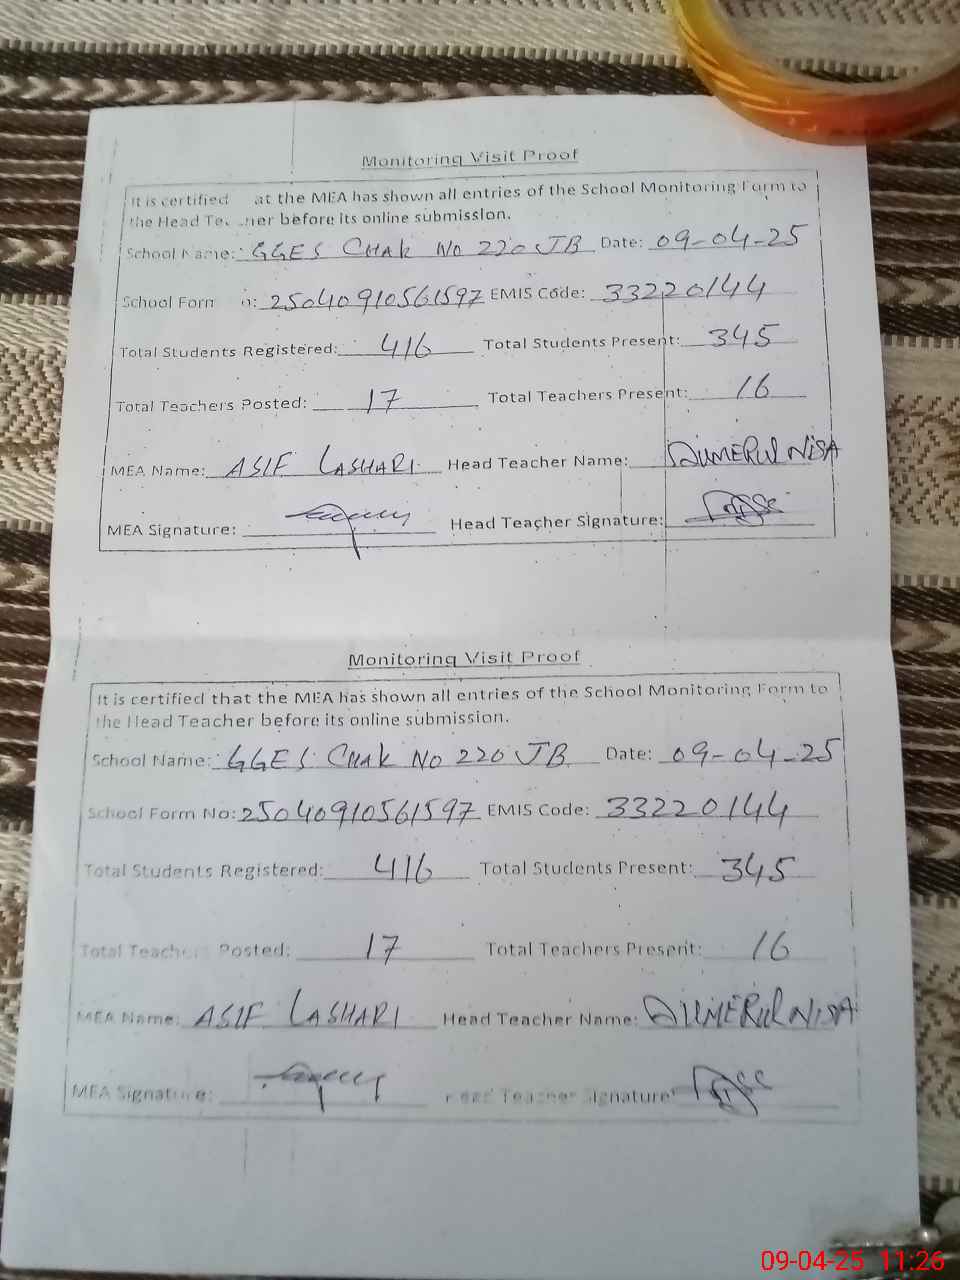 Monitoring Visit Proof
It is certified at the MEA has shown all entries of the School Monitoring Form to
the Head Te. .her before its online submission.
School Name: GGES CHAK NO 220 JB Date: 09-04-25
School Form o: 25040910561597 EMIS Code: 33220144
Total Students Registered: 416 Total Students Present: 345
Total Teachers Posted: 17 Total Teachers Present: 16
MEA Name: ASIF LASHARI Head Teacher Name: QUMERUL NISA
MEA Signature: Head Teacher Signature:
Monitoring Visit Proof
It is certified that the MEA has shown all entries of the School Monitoring Form to
the Head Teacher before its online submission.
School Name: GGES CHAK NO 220 JB Date: 09-04-25
School Form No: 25040910561597 EMIS Code: 33220144
Total Students Registered: 416 Total Students Present: 345
Total Teachers Posted: 17 Total Teachers Present: 16
MEA Name: ASIF LASHARI Head Teacher Name: QUMERUL NISA
MEA Signature: Head Teacher Signature:
09-04-25 11:26